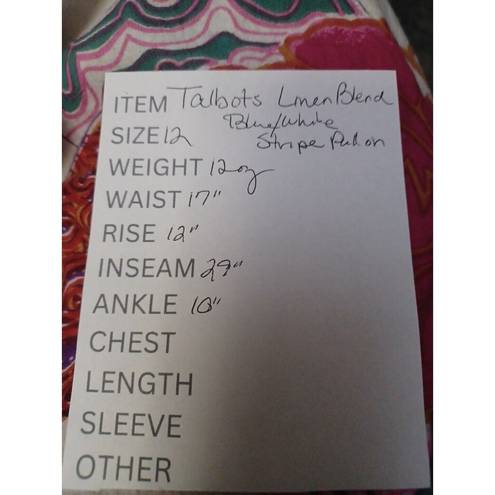 ITEM Talbots Linen Blend
Blue/White
SIZE 12 Stripe Pull on
WEIGHT 12oz
WAIST 17"
RISE 12"
INSEAM 29"
ANKLE 10"
CHEST
LENGTH
SLEEVE
OTHER